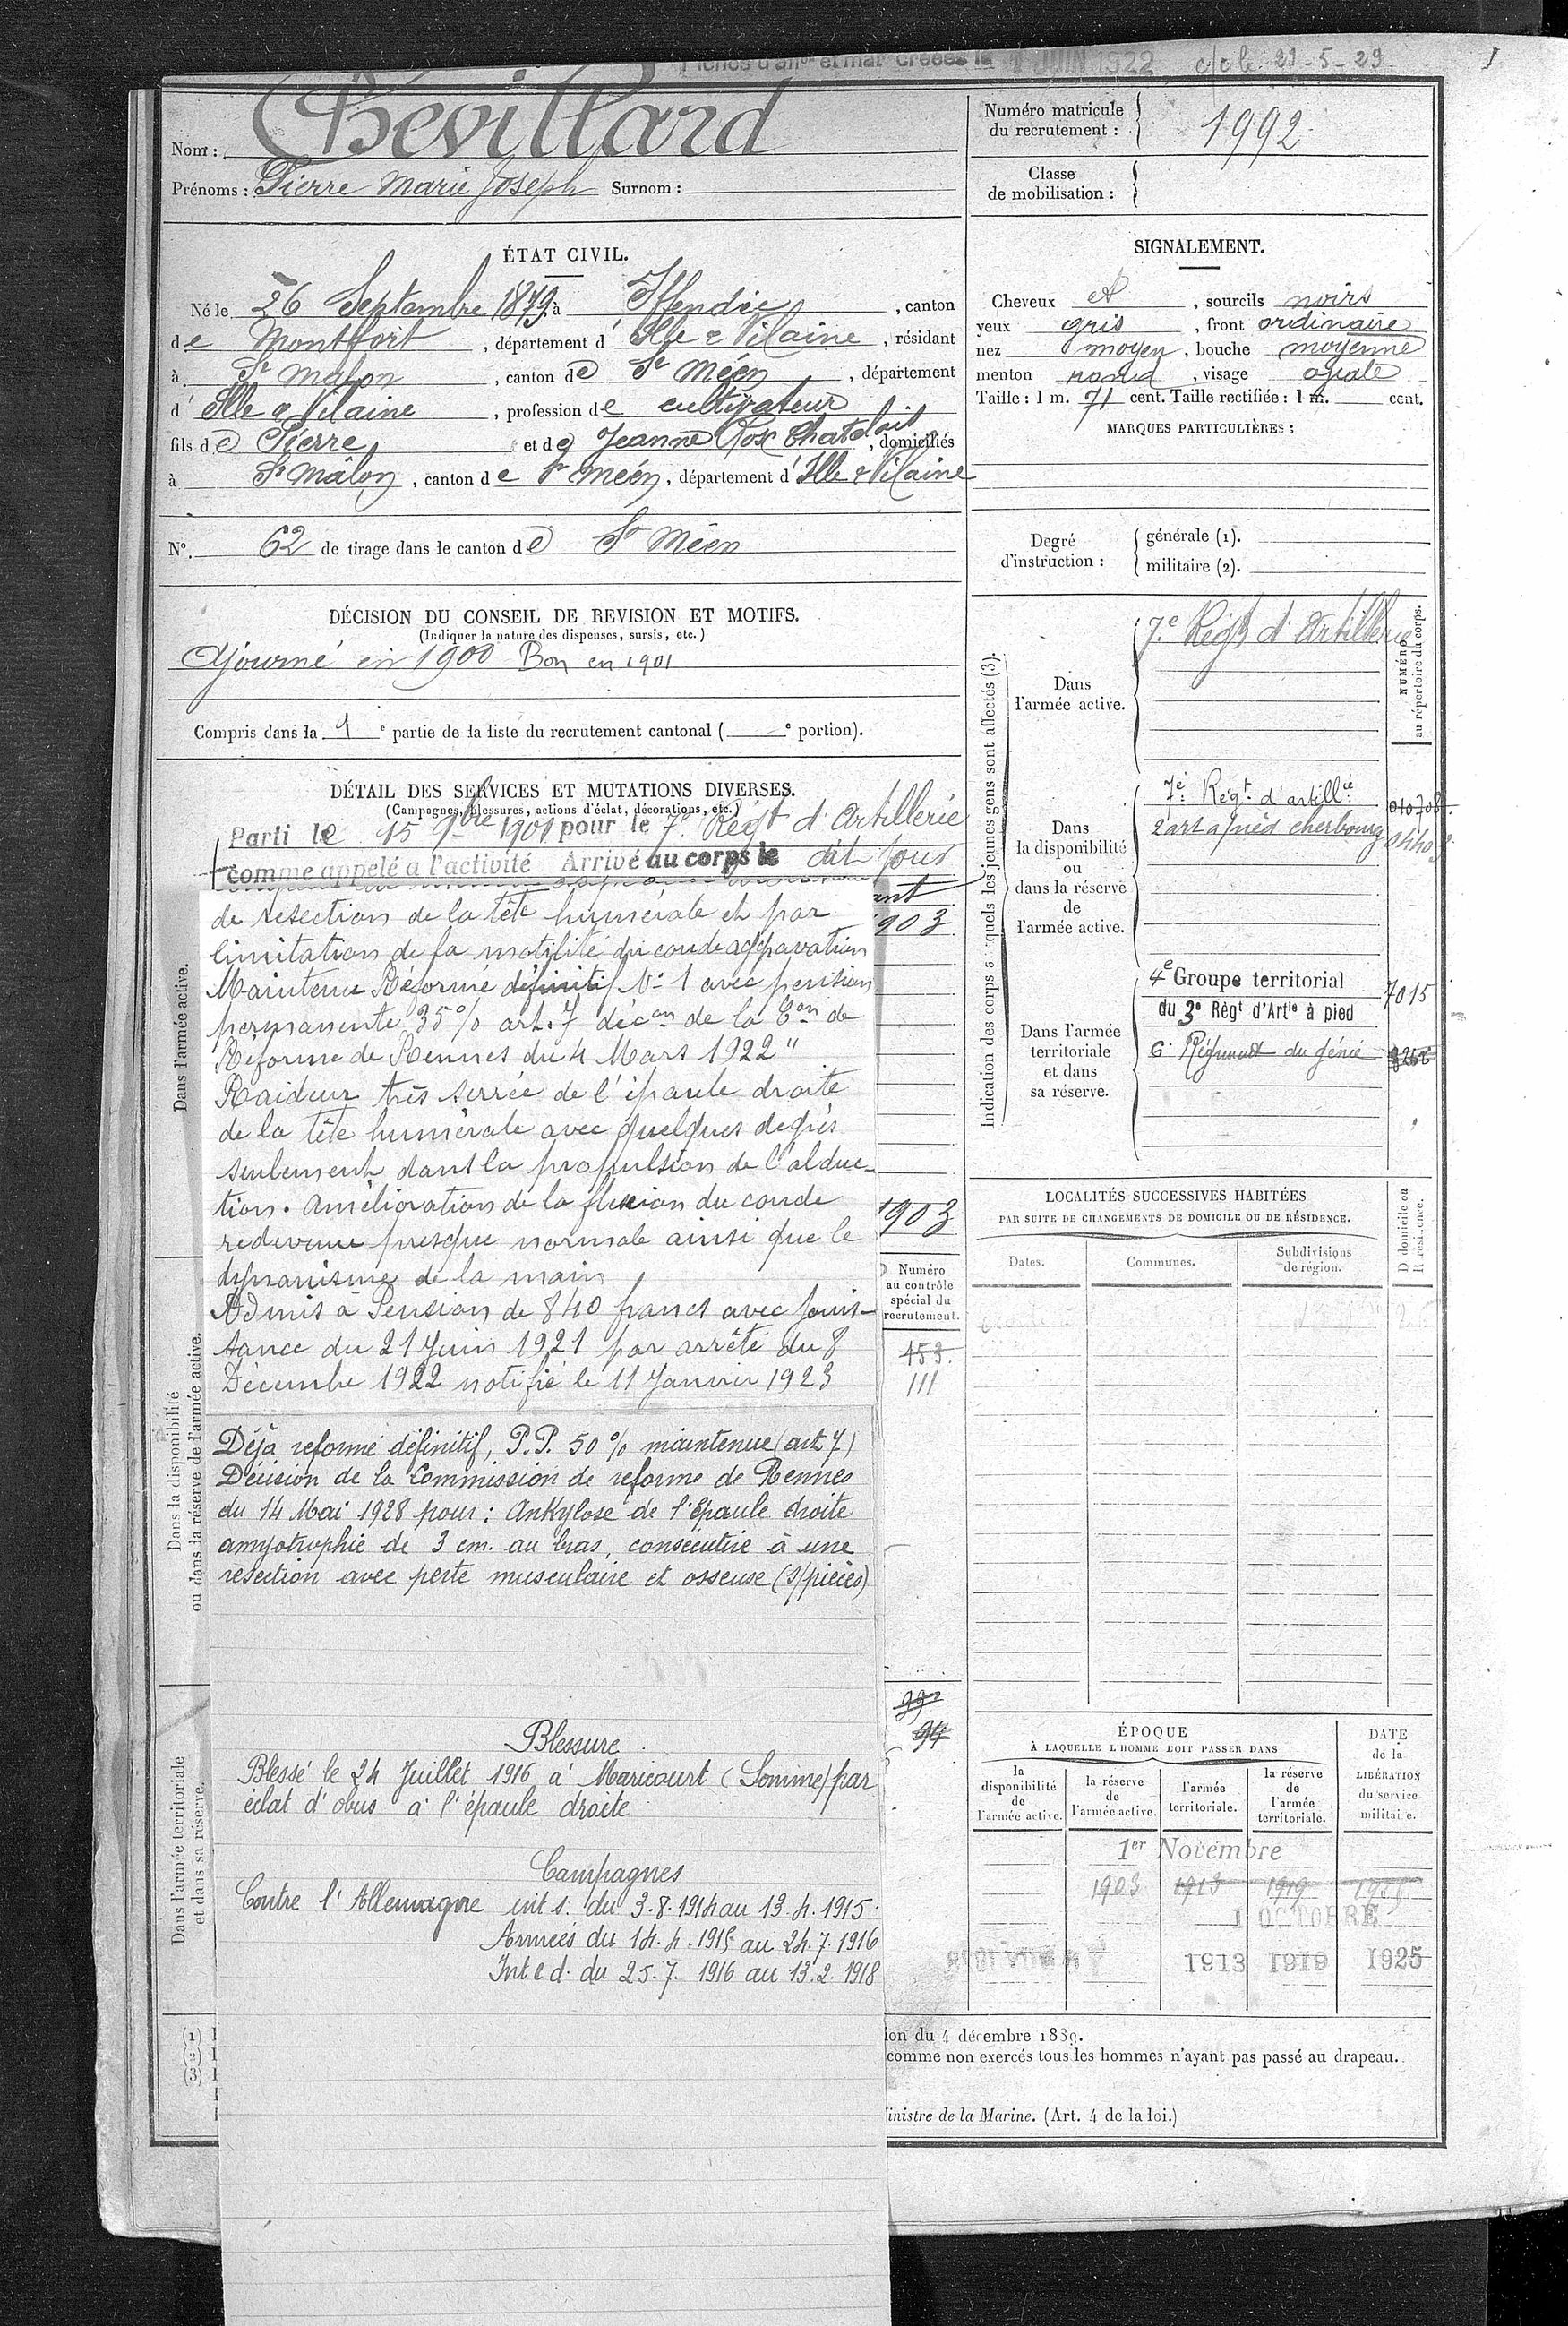 Fiches d'all⁰ˢ et mar créées le 1 JUIN 1922 c/ole 29-5-29
Nom : Chevillard
Prénoms : Pierre Marie Joseph Surnom :
Numéro matricule du recrutement : 1992
Classe de mobilisation :
ÉTAT CIVIL.
Né le 26 Septembre 1879 à Iffendic, canton
de Montfort, département d' Ille & Vilaine, résidant
à St Malon, canton de St Méen, département
d' Ille & Vilaine, profession de cultivateur
fils de Pierre et de Jeanne Rose, domiciliés
à St Mâlon, canton de St Méen, département d' Ille & Vilaine
N°. 62 de tirage dans le canton de St Méen
SIGNALEMENT.
Cheveux et, sourcils noirs
yeux gris, front ordinaire
nez moyen, bouche moyenne
menton rond, visage ovale
Taille : 1 m. 71 cent. Taille rectifiée : 1 m. cent.
MARQUES PARTICULIÈRES :
Degré d'instruction : générale (1).
militaire (2).
DÉCISION DU CONSEIL DE REVISION ET MOTIFS.
(Indiquer la nature des dispenses, sursis, etc.)
Ajourné en 1900 Bon en 1901
Compris dans la 1e partie de la liste du recrutement cantonal ( e portion).
DÉTAIL DES SERVICES ET MUTATIONS DIVERSES.
(Campagnes, blessures, actions d'éclat, décorations, etc.)
Parti le 15 9bre 1901 pour le 7e Régt d'Artillerie
comme appelé a l'activité Arrivé au corps le dit jour
ant
1903
de resection de la tête humérale et par
limitation de la motilité du coude aggravation
Maintenu Réformé définitif N° 1 avec pension
permanente 35% art. 7 décon de la Con de
Réforme de Rennes du 4 Mars 1922 "
Raideur très serrée de l'épaule droite
de la tête humérale avec quelques degrés
seulement dans la propulsion de l'abduc-
tion. Amélioration de la flexion du coude
redevenue presque normale ainsi que le
dynanisme de la main
Admis à Pension de 840 francs avec jouis-
sance du 21 Juin 1921 par arrêté du 8
Décembre 1922 notifié le 11 Janvier 1923
1903
Numéro
au contrôle
spécial du
recrutement.
153.
111
Déjà reformé définitif, P.P. 50 % maintenue (art 7)
Décision de la Commission de réforme de Rennes
du 14 Mai 1928 pour : Ankylose de l'Epaule droite
amyotrophie de 3 cm. au bras, consécutive à une
resection avec perte musculaire et osseuse (s/pièces)
94
Blessure
Blessé le 24 Juillet 1916 à Maricourt (Somme) par
éclat d'obus à l'épaule droite
Campagnes
Contre l'Allemagne int s. du 3.8.1914 au 13.4.1915.
Armées du 14.4.1915 au 24.7.1916
Int e d. du 25.7.1916 au 13.2.1918
Dans l'armée active.
Dans la disponibilité
ou dans la réserve de l'armée active.
Dans l'armée territoriale
et dans sa réserve.
(1)
(2)
(3)
Indication des corps auxquels les jeunes gens sont affectés (3).
Dans
l'armée active.
7e Régt d'Artillerie
NUMÉRO
au répertoire du corps.
Dans
la disponibilité
ou
dans la réserve
de
l'armée active.
7e Régt. d'artillie
2 art à pied cherbourg
Dans l'armée
territoriale
et dans
sa réserve.
4e Groupe territorial
du 3e Régt d'Artie à pied
7015
6 Régiment du génie
LOCALITÉS SUCCESSIVES HABITÉES
PAR SUITE DE CHANGEMENTS DE DOMICILE OU DE RÉSIDENCE.
Dates. Communes. Subdivisions de région.
D domicile ou
R résidence.
ÉPOQUE
À LAQUELLE L'HOMME DOIT PASSER DANS
la disponibilité de l'armée active.
la réserve de l'armée active.
l'armée territoriale.
la réserve de l'armée territoriale.
DATE de la LIBÉRATION du service militaire.
1er Novembre
1903 1913 1919
1 OCTOBRE
1913 1919 1925
ion du 4 décembre 1889.
comme non exercés tous les hommes n'ayant pas passé au drapeau.
inistre de la Marine. (Art. 4 de la loi.)